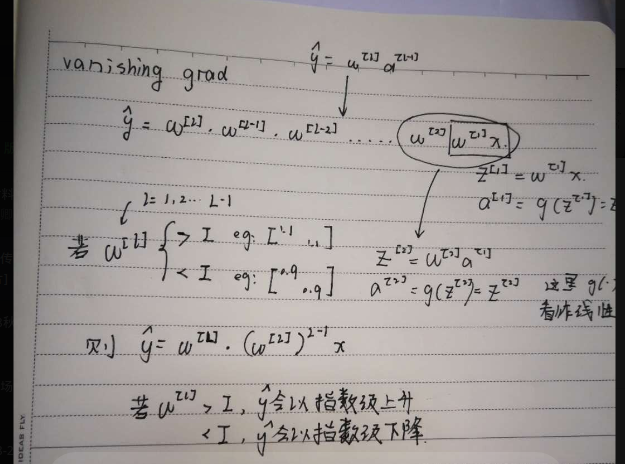 ŷ = w^[L] a^[L-1]
vanishing grad
ŷ = w^[L] · w^[L-1] · w^[L-2] ..... w^[2] w^[1] x.
z^[1] = w^[1] x
a^[1] = g(z^[1]) = z
l = 1, 2 ... L-1
若 w^[l] { > I eg: [1.1 1.1]
< I eg: [0.9 0.9]
z^[2] = w^[2] a^[1]
a^[2] = g(z^[2]) = z^[2]
这里 g(·)
看作线性
则 ŷ = w^[L] · (w^[l])^L-1 x
若 w^[l] > I, ŷ会以指数级上升
< I, ŷ会以指数级下降.
IDEAS FLY.